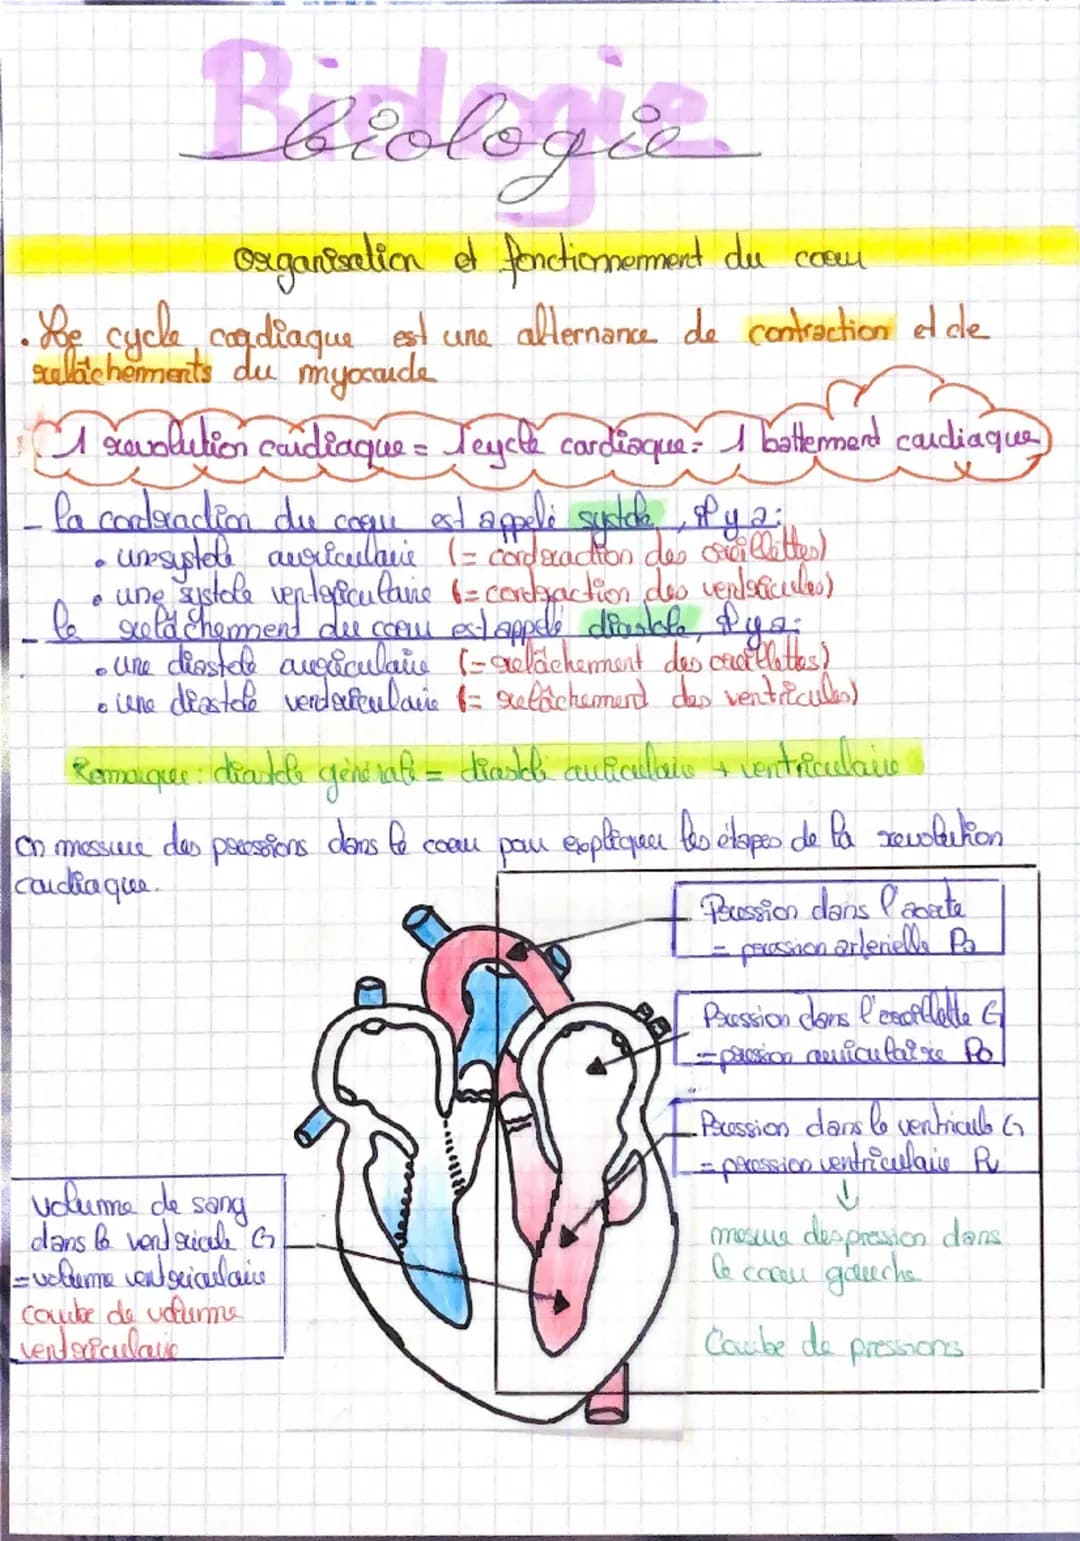 Biologie
biologie
organisation et fonctionnement du coeur
. Le cycle cardiaque est une alternance de contraction et de
relâchements du myocarde
1 revolution cardiaque = 1 cycle cardiaque = 1 battement cardiaque
- la contraction du coeur est appelé systole, il y a :
• une systole auriculaire (= contraction des oreillettes)
• une systole ventriculaire (= contraction des ventricules)
- le relâchement du coeur est appelé diastole, il y a :
• une diastole auriculaire (= relâchement des oreillettes)
• une diastole ventriculaire (= relâchement des ventricules)
Remarque : diastole générale = diastole auriculaire + ventriculaire
On messure des pressions dans le coeur pour expliquer les étapes de la revolution
cardiaque.
Pression dans l'aorte
= pression arterielle Pa
Pression dans l'oreillette G
= pression auriculaire Po
Pression dans le ventricule G
= pression ventriculaire Pv
↓
mesure des pression dans
le coeur gauche
Courbe de pressions
volume de sang
dans le ventricule G
= volume ventriculaire
courbe de volume
ventriculaire